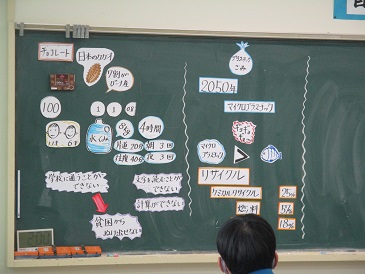 チョコレート
日本のカカイ
7割が
ガーナ産
100
1
1
08
水くみ
4時間
片道20分
朝3回
往復40分
夜3回
学校に通うことが
できない
文字を読むことが
できない
計算ができない
貧困から
ぬけ出せない
プラスチック
ごみ
2050年
マイクロプラスチック
マイクロ
プラスチック
>
リサイクル
ケミカルリサイクル
燃料
25%
57%
18%